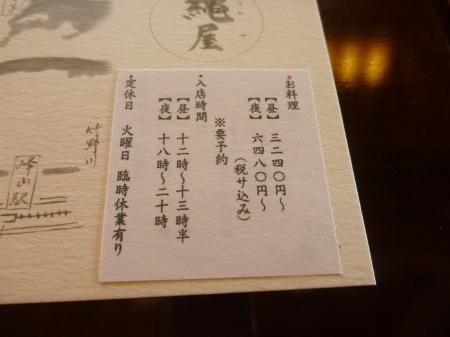 縄屋
・お料理
【昼】 三二四〇円～
【夜】 六四八〇円～
(税サ込み)
※要予約
・入店時間
【昼】 十二時～十三時半
【夜】 十八時～二十時
・定休日 火曜日 臨時休業有り
竹野川
峰山駅